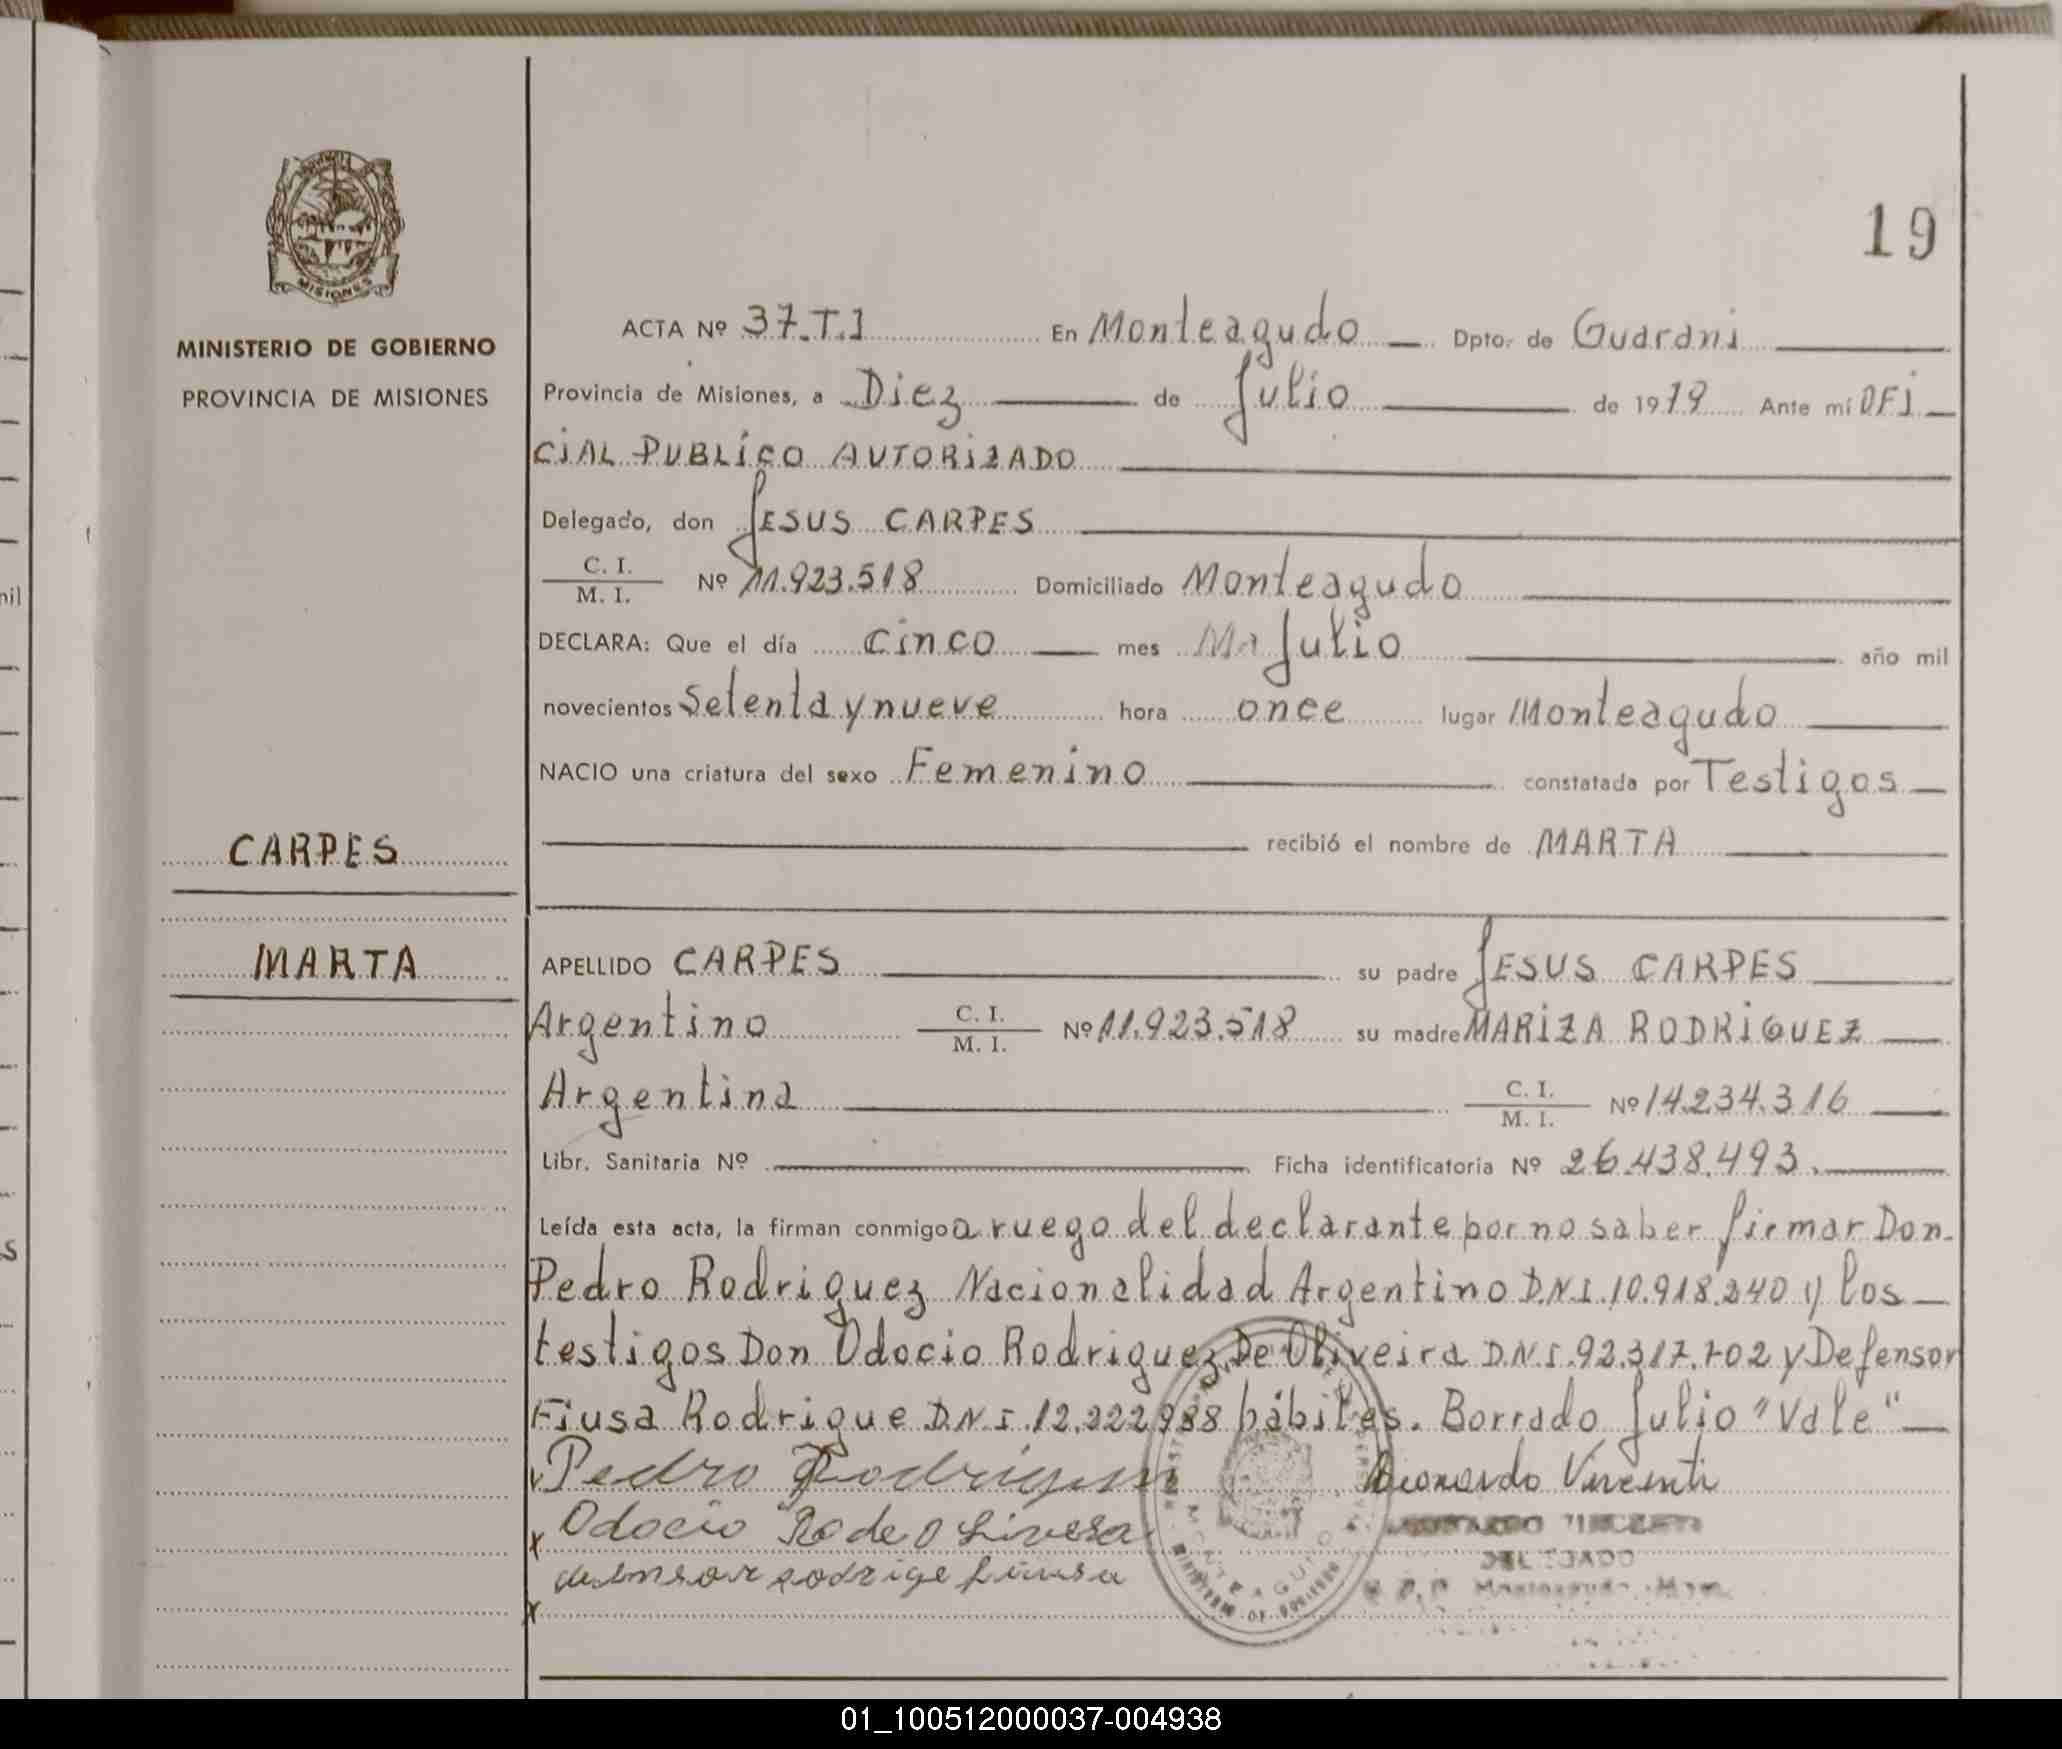 19
MISIONES
MINISTERIO DE GOBIERNO
PROVINCIA DE MISIONES
CARPES
MARTA
ACTA Nº 37.T.1 En Monteagudo Dpto. de Guarani
Provincia de Misiones, a Diez de Julio de 1979 Ante mí OFI
CIAL PUBLICO AUTORIZADO
Delegado, don JESUS CARPES
C. I.
M. I. Nº 11.923.518 Domiciliado Monteagudo
DECLARA: Que el día cinco mes Julio año mil
novecientos Setenta y nueve hora once lugar Monteagudo
NACIO una criatura del sexo Femenino constatada por Testigos
recibió el nombre de MARTA
APELLIDO CARPES su padre JESUS CARPES
Argentino C. I. M. I. Nº 11.923.518 su madre MARIZA RODRIGUEZ
Argentina C. I. M. I. Nº 14.234.316
Libr. Sanitaria Nº Ficha identificatoria Nº 26.438.493.
Leída esta acta, la firman conmigo a ruego del declarante por no saber firmar Don
Pedro Rodriguez Nacionalidad Argentino D.N.I. 10.918.240 y los
testigos Don Odocio Rodriguez De Oliveira D.N.I. 92.317.702 y Defensor
Fiusa Rodrigue D.N.I. 12.222.988 hábiles. Borrado Julio "Vale"
Pedro Rodriguez Leonardo Vicenti
Odocio Ro de Olivera
rodrige
DELEGADO
MONTEAGUDO
MINISTERIO DE GOBIERNO
01_100512000037-004938
nil
s